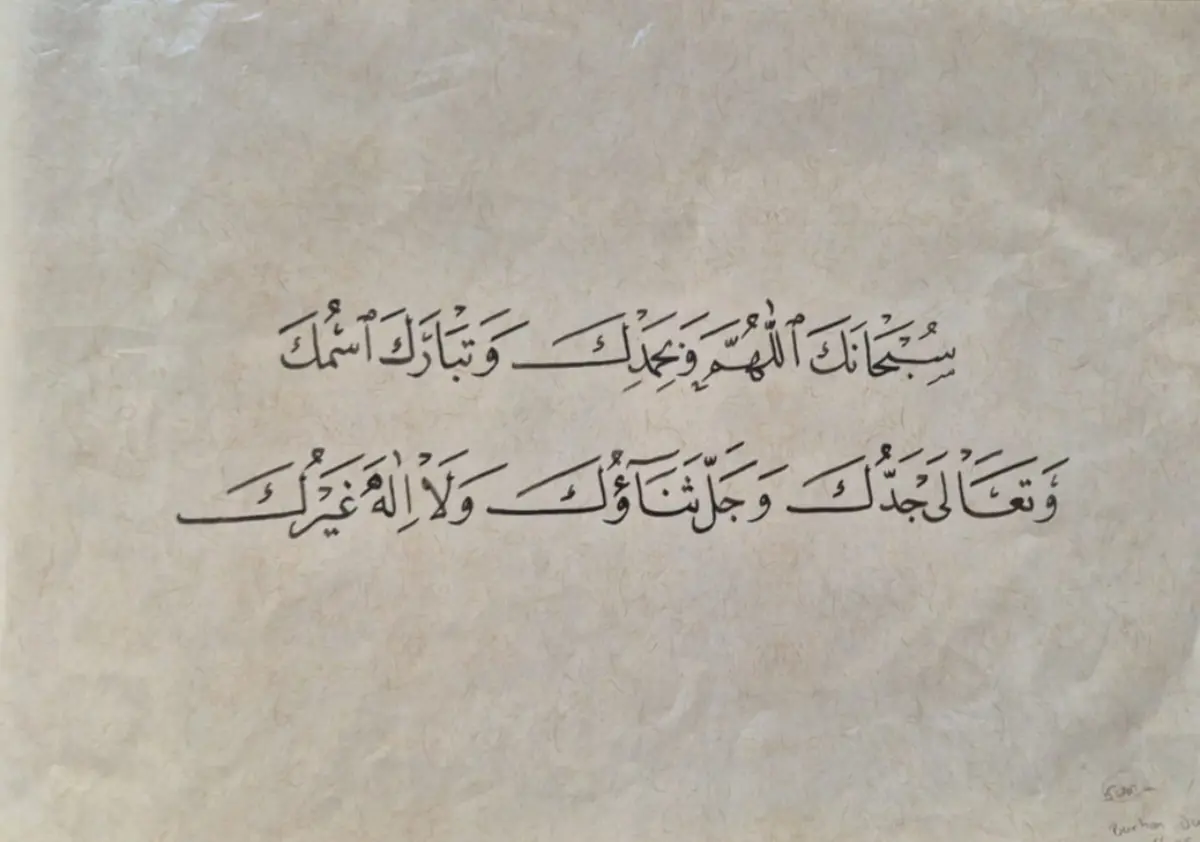 سُبْحَانَكَ ٱللّٰهُمَّ وَبِحَمْدِكَ وَتَبَارَكَ ٱسْمُكَ
وَتَعَالَى جَدُّكَ وَجَلَّ ثَنَآؤُكَ وَلَآ اِلٰهَ غَيْرُكَ
Burhan